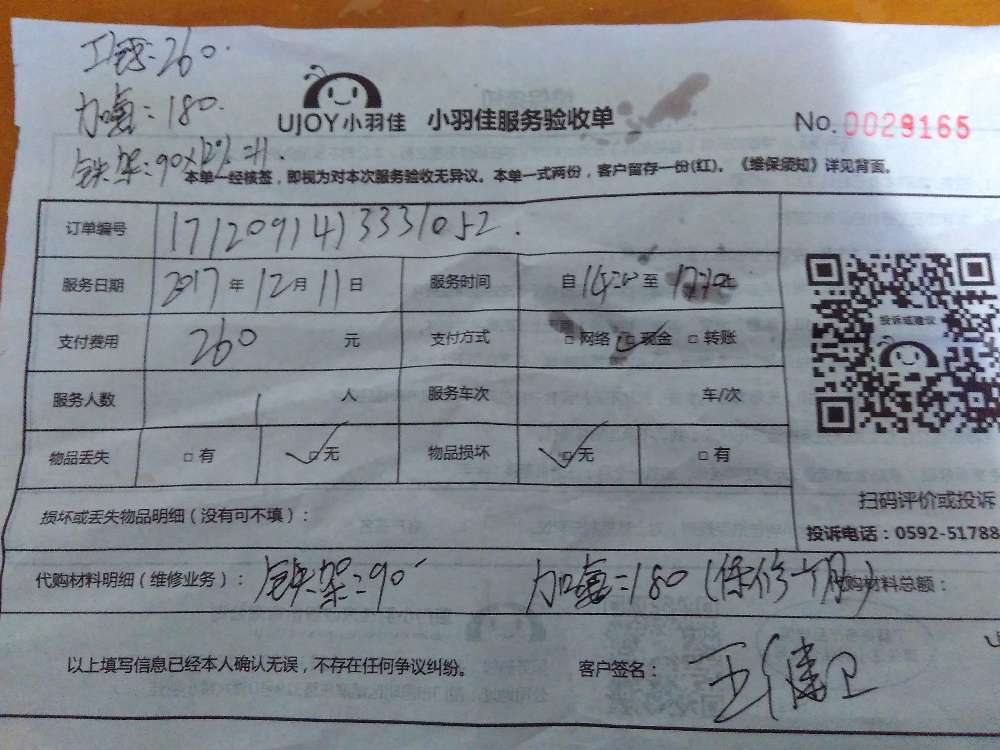 工钱:260.
加氟:180.
铁架:90×12%=11.
UJOY小羽佳 小羽佳服务验收单 No.0029165
本单一经核签,即视为对本次服务验收无异议。本单一式两份,客户留存一份(红)。《维保须知》详见背面。
订单编号 1712091413331052.
服务日期 2017年12月11日 服务时间 自14 至
支付费用 260 元 支付方式 □网络 □现金 □转账
投诉或建议
服务人数 1 人 服务车次 车/次
物品丢失 □有 □无 物品损坏 □无 □有
扫码评价或投诉
损坏或丢失物品明细(没有可不填):
投诉电话:0592-51788
代购材料明细(维修业务): 铁架:90 加氟:180(保修一个月) 代购材料总额:
以上填写信息已经本人确认无误,不存在任何争议纠纷。 客户签名: